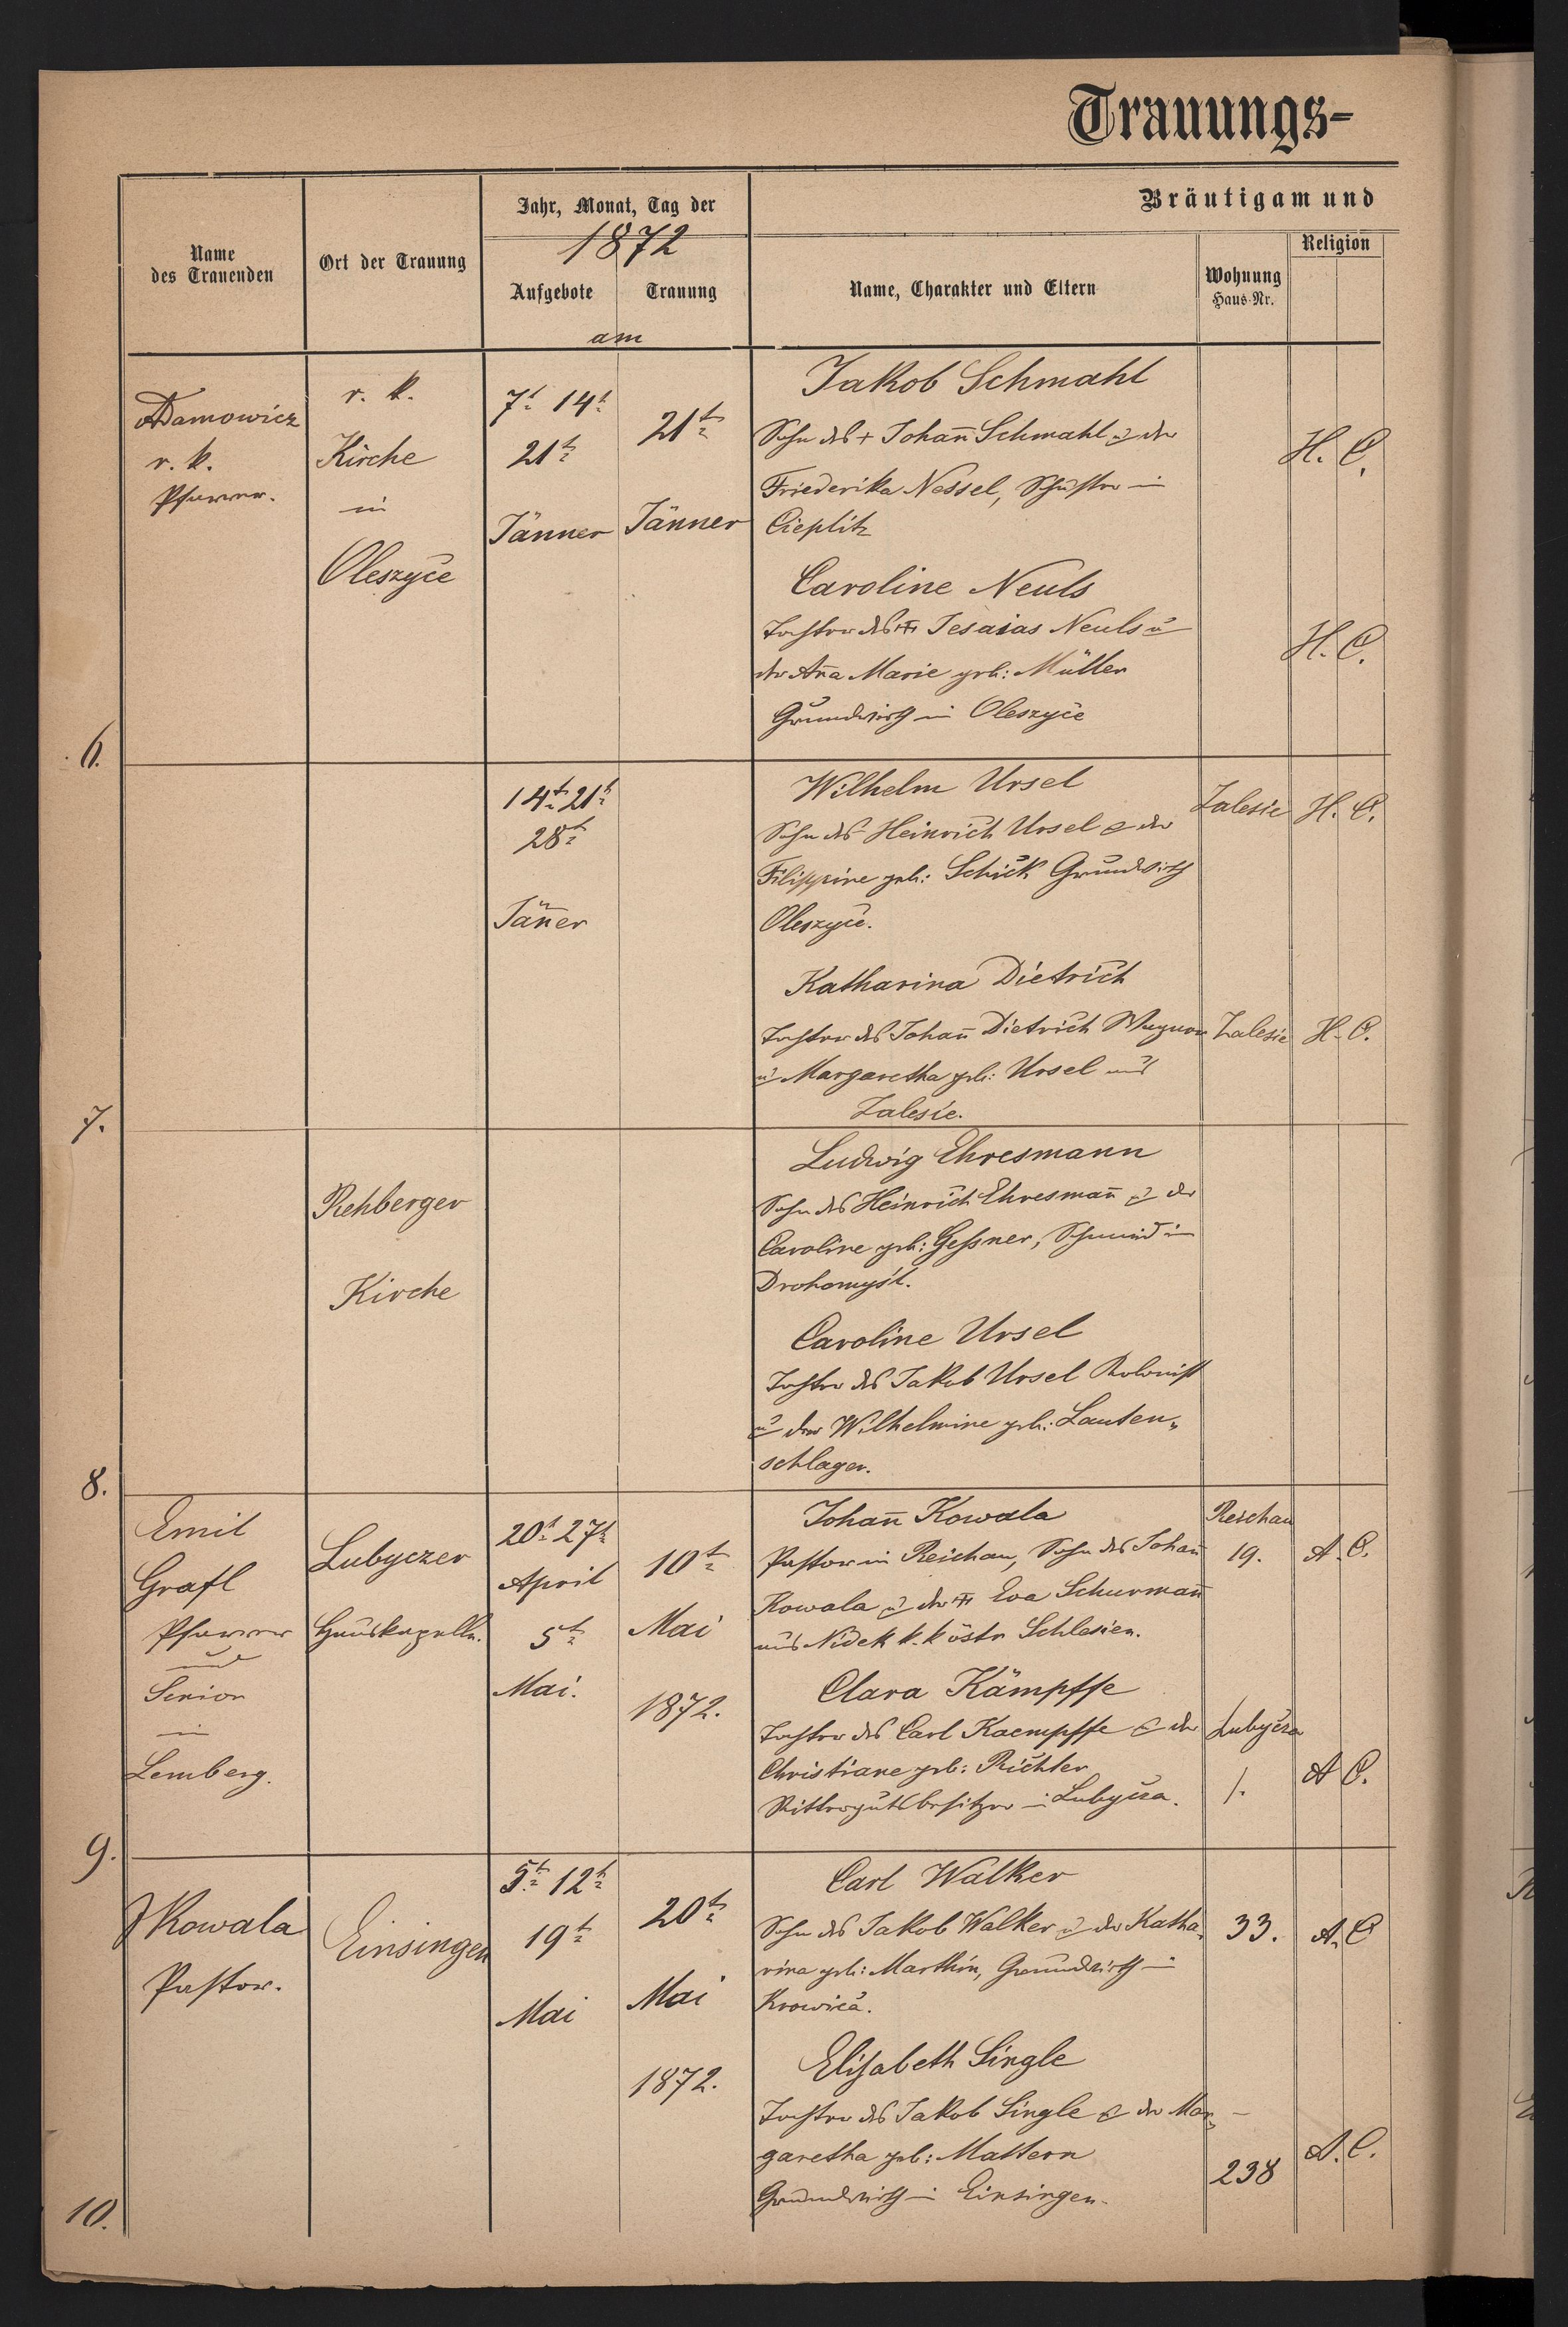 Trauungs-
Bräutigam und
Name
des Trauenden
Ort der Trauung
Jahr, Monat, Tag der
1872
Aufgebote
Trauung
am
Name, Charakter und Eltern
Wohnung
Haus-Nr.
Religion
Adamowicz
r. k.
Pfarrer.
r. k.
Kirche
in
Oleszyce
7t 14t
21t
Jänner
21t
Jänner
Jakob Schmahl
Sohn des + Johañ Schmahl u der
Friederika Nessel, Schuster in
Cieplitz
H. C.
Caroline Neuls
Tochter des Jesaias Neuls u
der Aña Marie geb: Müller
Grundwirth in Oleszyce
H. C.
6.
14t 21t
28t
Jäñer
Wilhelm Ursel
Sohn des Heinrich Ursel & der
Filippine geb: Schick Grundwirth
Oleszyce.
Zalesie
H. C.
Katharina Dietrich
Tochter des Johañ Dietrich Wagner
u Margaretha geb: Ursel aus
Zalesie.
Zalesie
H. C.
7.
Rehberger
Kirche
Ludwig Ehresmann
Sohn des Heinrich Ehresmañ u der
Caroline geb: Geßner, Schmid in
Drohomyśl.
Caroline Ursel
Tochter des Jakob Ursel Kolonist
u der Wilhelmine geb: Lauten„
schlager.
8.
Emil
Grafl
Pfarrer
und
Senior
in
Lemberg.
Lubyczer
Hauskapelle.
20t 27t
April
5t
Mai.
10t
Mai
1872.
Johañ Kowala
Pastor in Reichau, Sohn des Johañ
Kowala u der Eva Schurmañ
aus Nidek k. k östr Schlesien.
Reichau
19.
A. C.
Clara Kämpffe
Tochter des Carl Kaempffe & der
Christiane geb: Richter
Rittergutsbesitzer in Lubycza.
Lubycza
1.
A C.
9.
J Kowala
Pastor.
Einsingen
5t 12t
19t
Mai
20t
Mai
1872.
Carl Walker
Sohn des Jakob Walker u der Katha„
rina geb: Marthin, Grundwirth in
Krowica.
33.
A. C
Elisabeth Single
Tochter des Jakob Single & der Mar„
garetha geb: Mattern
Grundwirth in Einsingen.
238
A. C.
10.